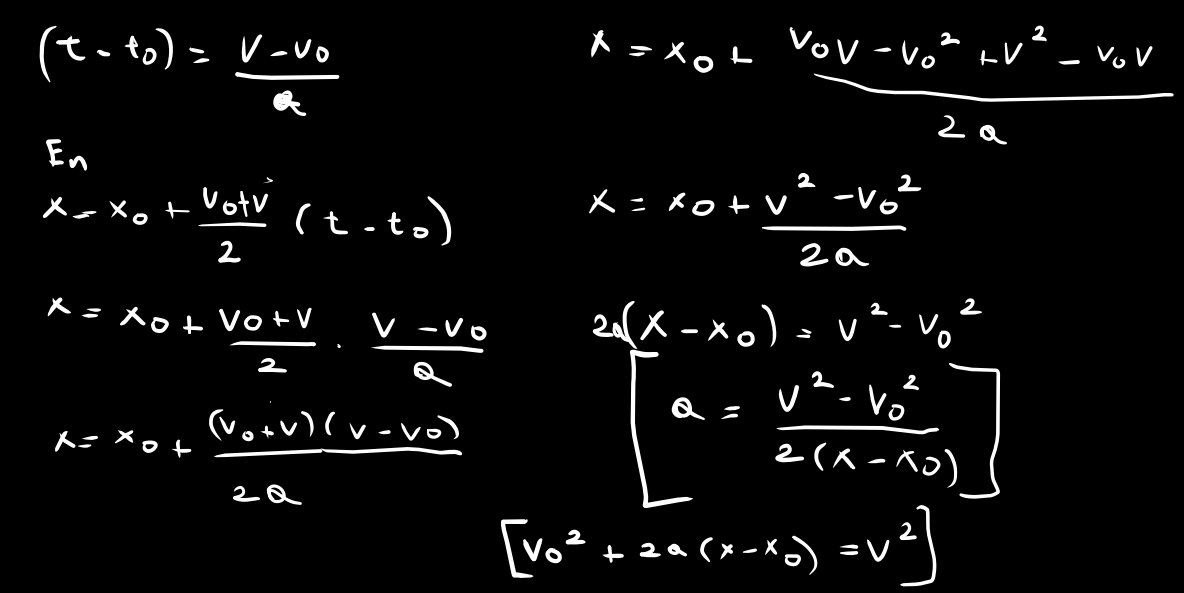 (t - t₀) = (v - v₀)/a
En
x = x₀ + (v₀+v)/2 (t - t₀)
x = x₀ + (v₀+v)/2 · (v - v₀)/a
x = x₀ + (v₀+v)(v - v₀)/2a
x = x₀ + (v₀v - v₀² + v² - v₀v)/2a
x = x₀ + (v² - v₀²)/2a
2a(x - x₀) = v² - v₀²
[a = (v² - v₀²)/2(x - x₀)]
[v₀² + 2a(x - x₀) = v²]